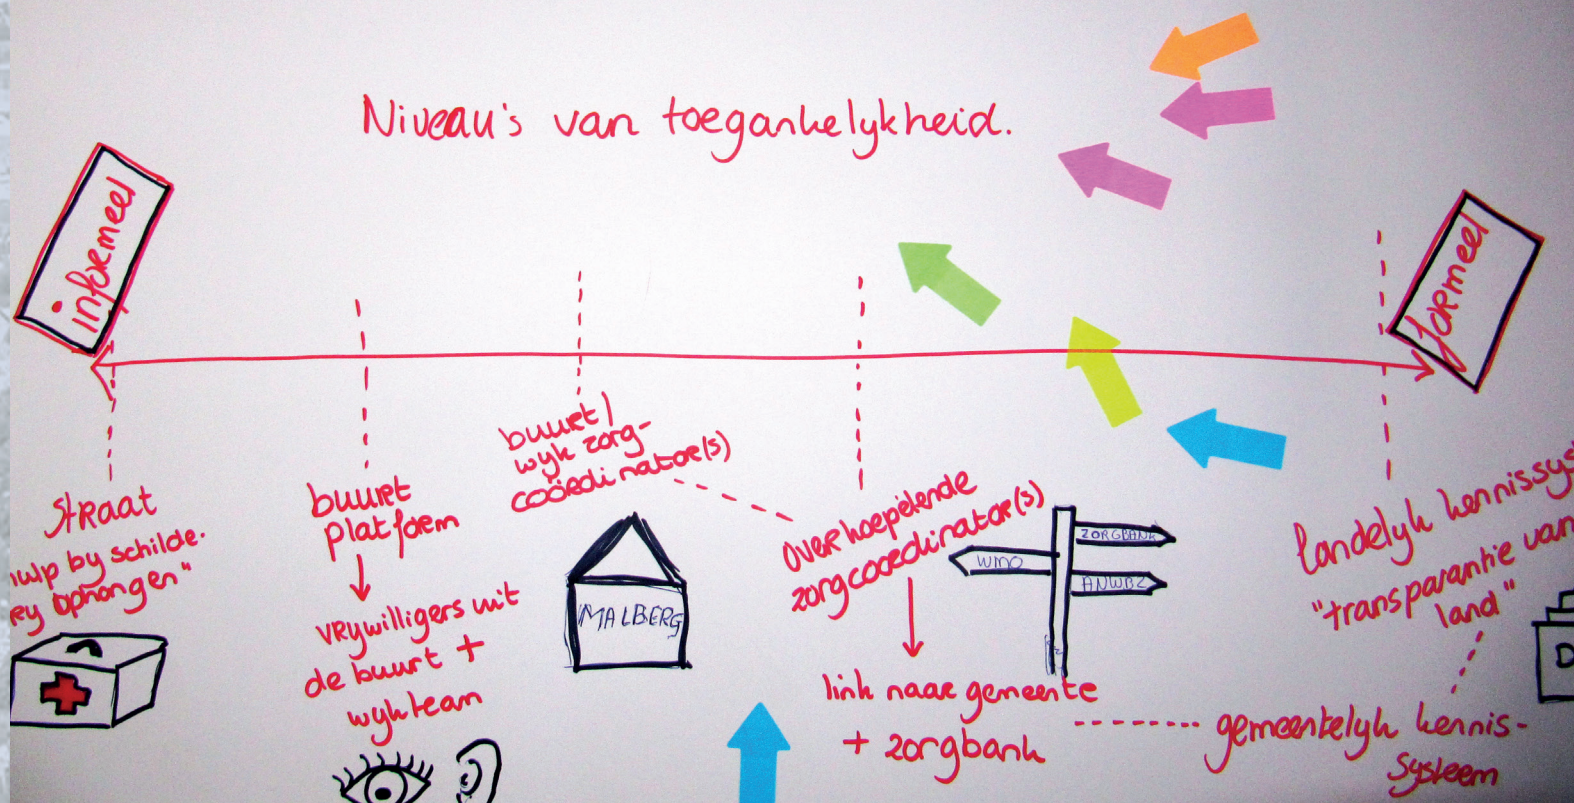 Niveau's van toegankelykheid.
informeel
formeel
straat
hulp by schilde.
ophangen"
buurt
platform
vrywilligers uit
de buurt +
wykteam
buurt/
wyk zorg-
coördinator(s)
MALBERG
overkoepelende
zorgcoördinator(s)
link naar gemeente
+ zorgbank
ZORGBANK
WMO
ANWBZ
landelyk kennissys
"transparantie van
land"
gemeentelyk kennis-
systeem
D